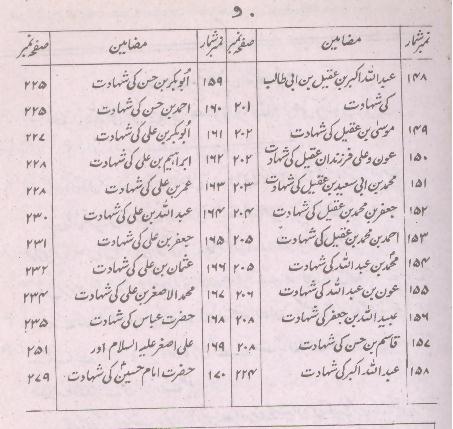 و
نمبر شمار مضامین صفحہ نمبر
۱۴۸ عبداللہ اکبر بن عقیل بن ابی طالب
کی شہادت ۲۰۱
۱۴۹ موسیٰ بن عقیل کی شہادت ۲۰۲
۱۵۰ عون و علی فرزندان عقیل کی شہادت ۲۰۲
۱۵۱ محمد بن ابی سعید بن عقیل کی شہادت ۲۰۳
۱۵۲ جعفر بن محمد بن عقیل کی شہادت ۲۰۴
۱۵۳ احمد بن محمد بن عقیل کی شہادت ۲۰۵
۱۵۴ محمد بن عبداللہ کی شہادت ۲۰۵
۱۵۵ عون بن عبداللہ کی شہادت ۲۰۶
۱۵۶ عبید اللہ بن جعفر کی شہادت ۲۰۸
۱۵۷ قاسم بن حسن کی شہادت ۲۰۸
۱۵۸ عبداللہ اکبر کی شہادت ۲۲۴
نمبر شمار مضامین صفحہ نمبر
۱۵۹ ابوبکر بن حسن کی شہادت ۲۲۵
۱۶۰ احمد بن حسن کی شہادت ۲۲۵
۱۶۱ ابوبکر بن علی کی شہادت ۲۲۷
۱۶۲ ابراہیم بن علی کی شہادت ۲۲۸
۱۶۳ عمر بن علی کی شہادت ۲۲۸
۱۶۴ عبداللہ بن علی کی شہادت ۲۳۰
۱۶۵ جعفر بن علی کی شہادت ۲۳۱
۱۶۶ عثمان بن علی کی شہادت ۲۳۲
۱۶۷ محمد الاصغر بن علی کی شہادت ۲۳۴
۱۶۸ حضرت عباس کی شہادت ۲۳۵
۱۶۹ علی اصغر علیہ السلام اور ۲۵۱
۱۷۰ حضرت امام حسینؑ کی شہادت ۲۷۹